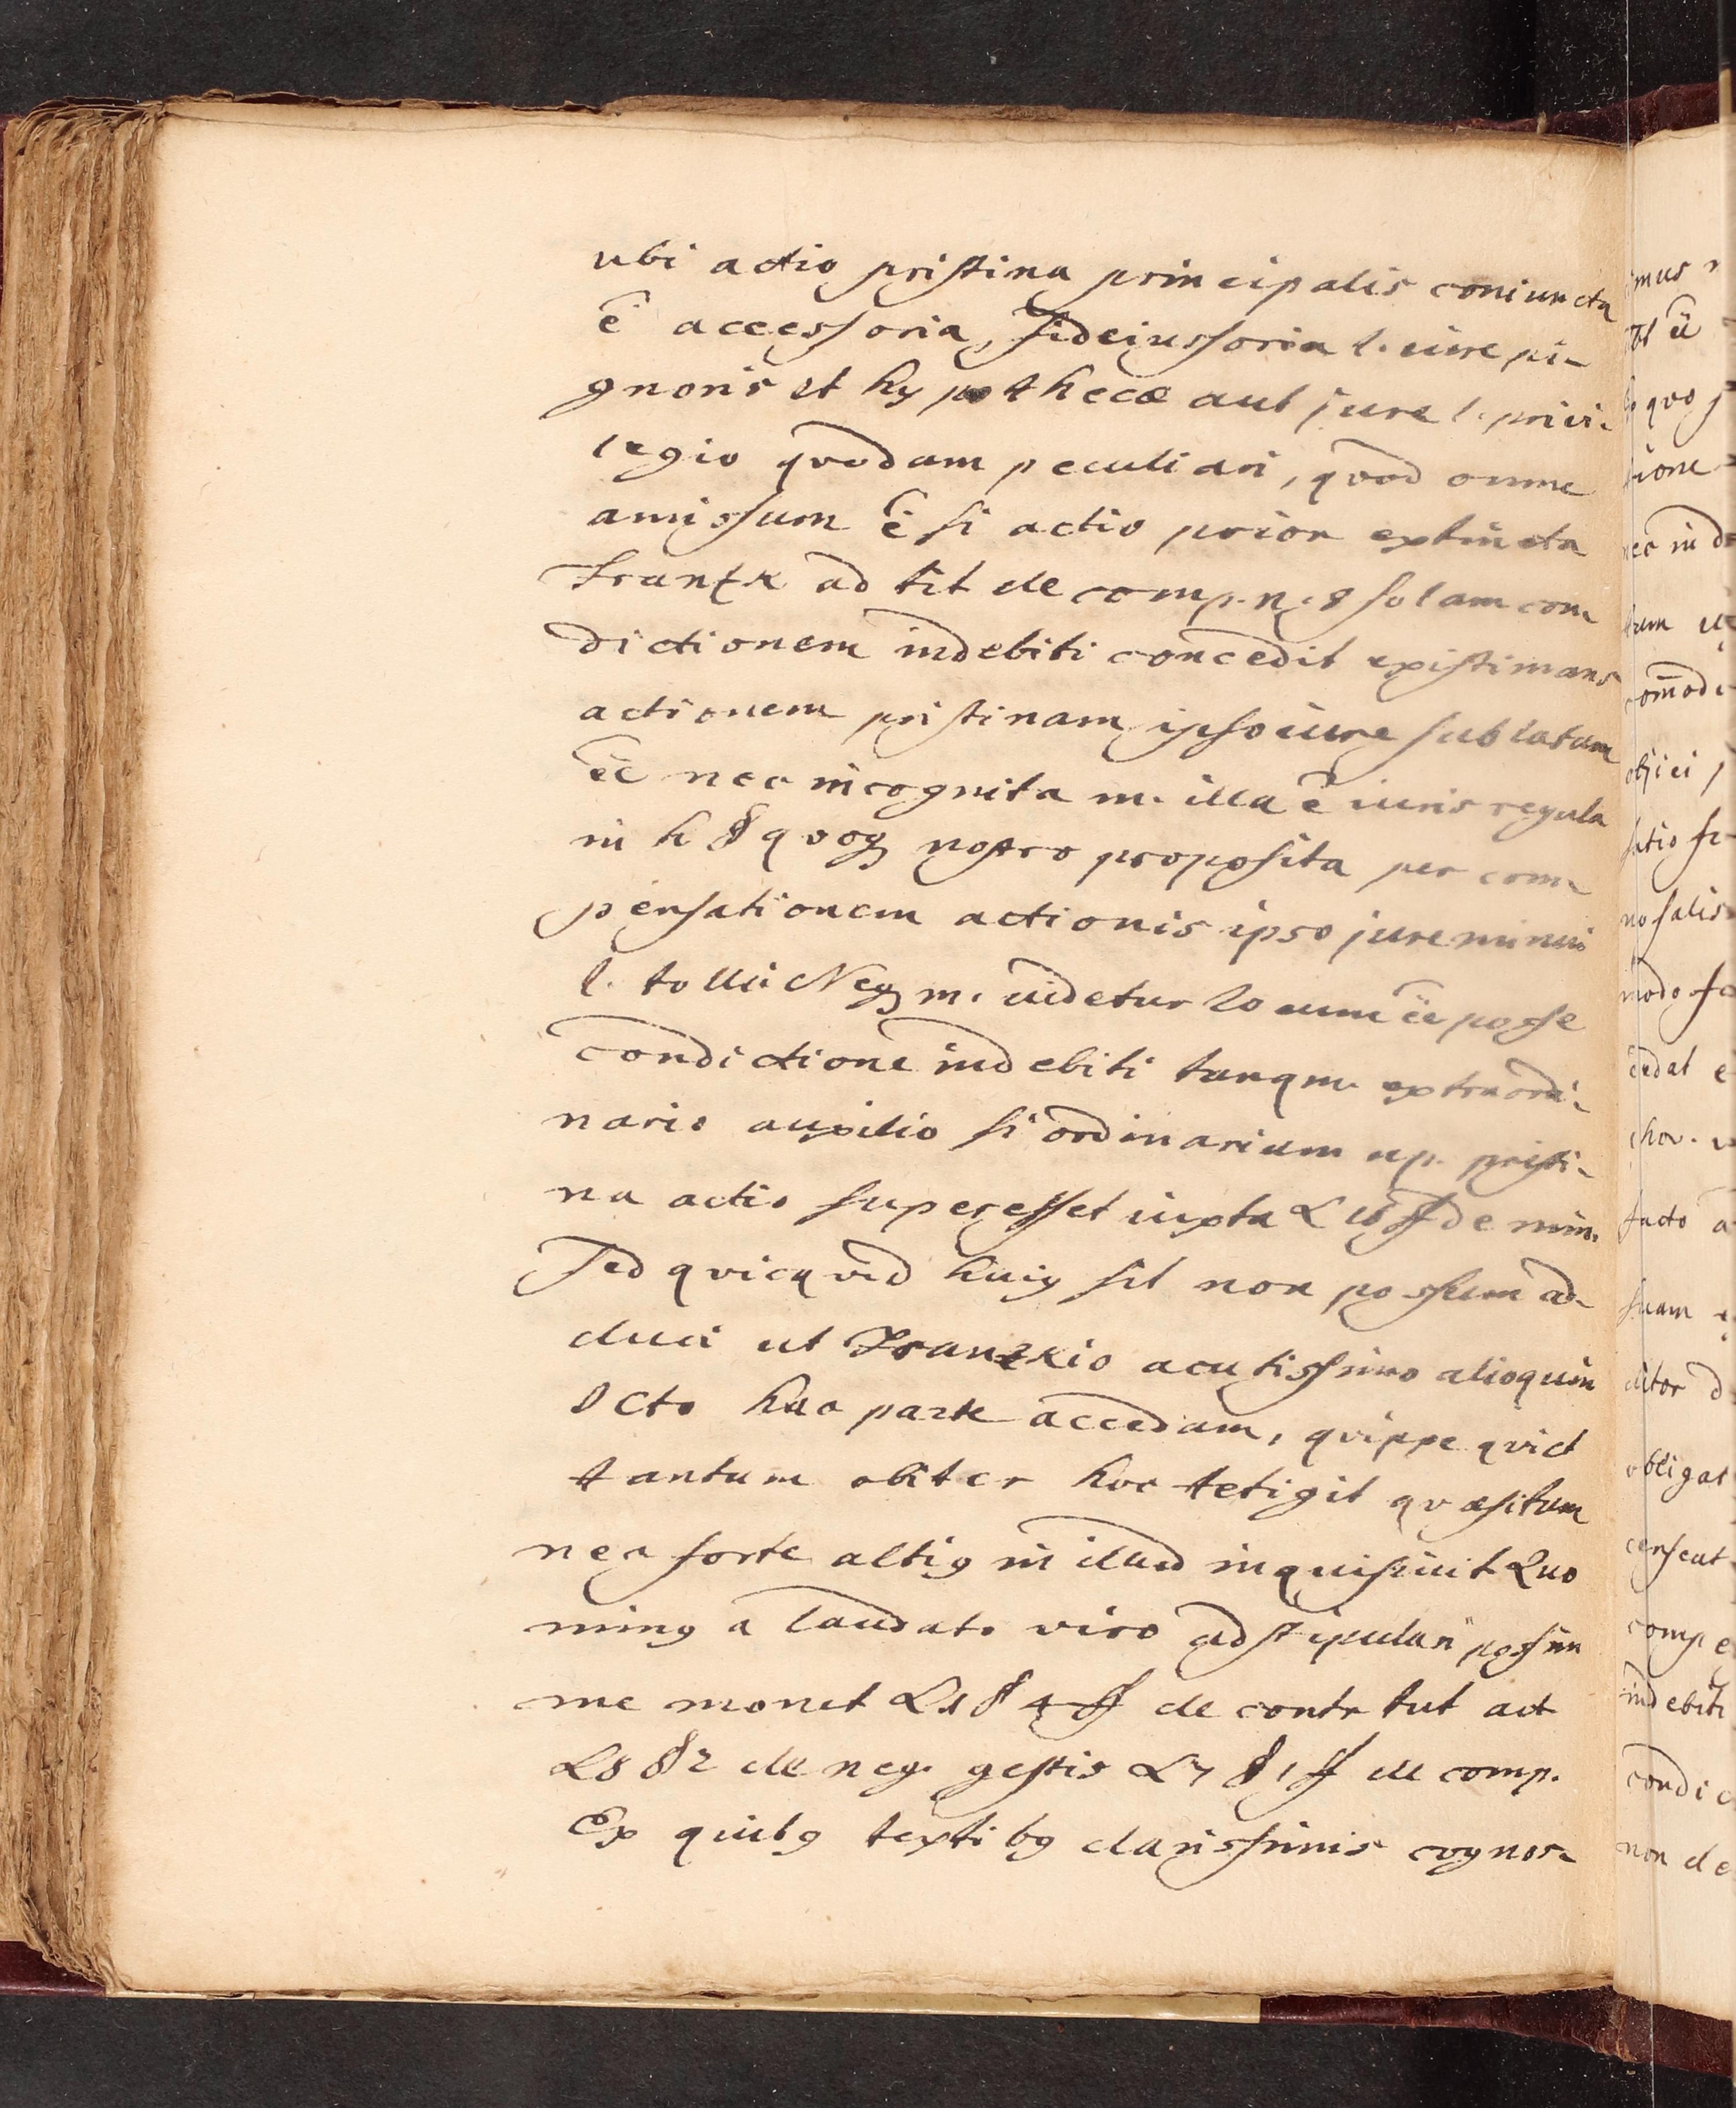 ubi actio pristina principalis coniuncta
ē accessoria, fideiussoria l. iure pi-
gnoris et hypothecæ aut jure l. privi-
legio qvodam peculiari, qvod omne
amissum ē si actio prior extincta
Frantzk ad tit de comp. n. 8 solam con
dictionem indebiti concedit existimans
actionem pristinam ipso iure sublatam
ēē nec incognita m. illa ē iuris regula
in h § qvoq nostro proposita per com-
pensationem actionis ipso jure minui
l. tolli Neq m. videtur locum ēē posse
condictione indebiti tanqm. extraordi-
nario auxilio si ordinarium np. pristi-
na actio superesset iuxta L 16 ff de min.
Sed qvicqvid huiq sit non possum ad-
duci ut Frantzkio acutissimo alioquin
JCto hac parte accedam, qvippe qvi et
tantum obiter hoc tetigit qvæsitum
nec forte altiq in illud inquisiuit Quo
minq a laudato viro adstipulari possim
me monet L 1 § 4 ff de contr tut act
L 8 § 2 de neg. gestis L 7 § 1 ff de comp.
Ex quibq textibq clarissimis cognos-
mus
quo
tione
nec in d
tum
com̄odi
objici
satio
no salis
modo
cedat
facto a
suam
ditor d
obligat
censeat
compe
indebiti
condic
non de